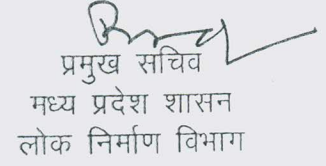 प्रमुख सचिव
मध्य प्रदेश शासन
लोक निर्माण विभाग